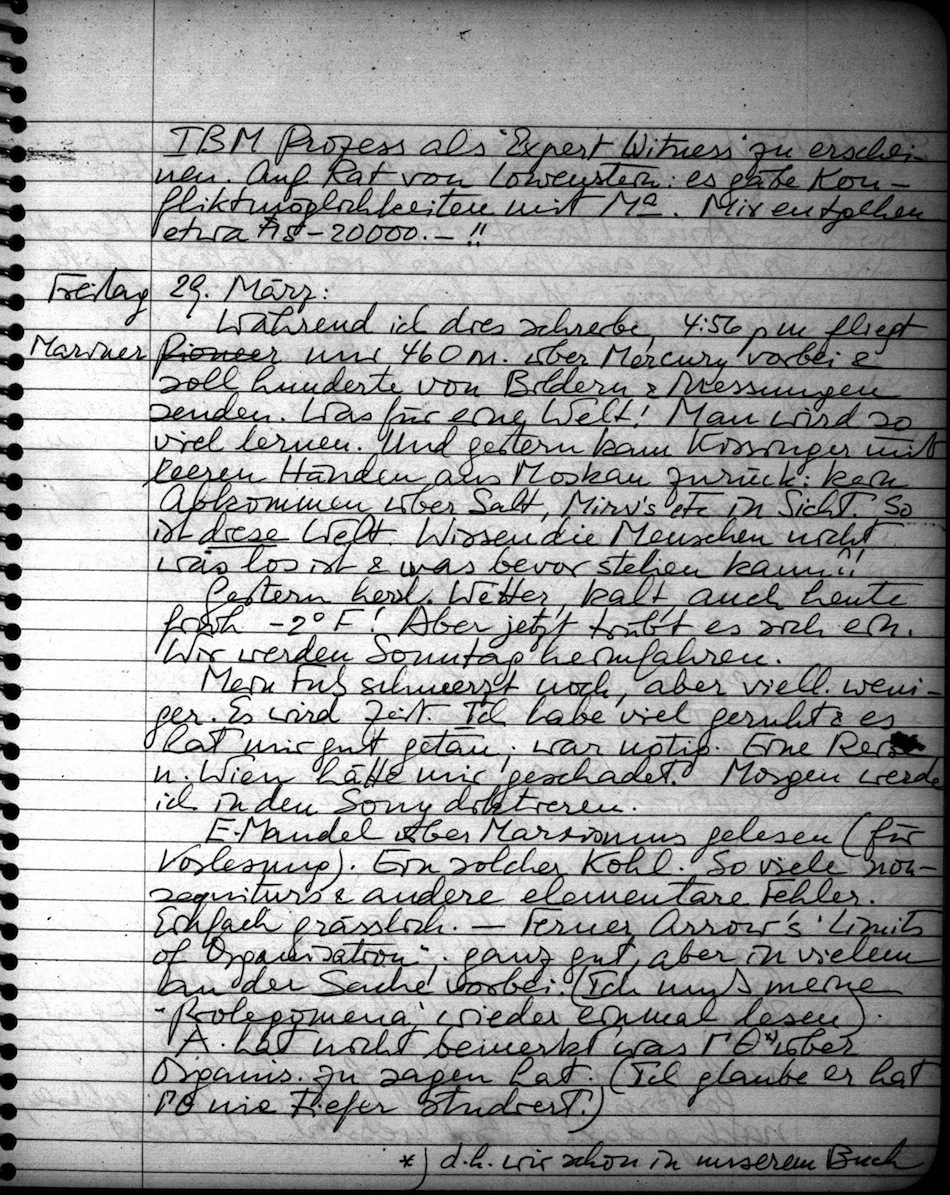 IBM Prozess als 'Expert Witness' zu erschei-
nen. Auf Rat von Lowenstein: es gäbe Kon-
fliktmöglichkeiten mit Ma. Mir entgehen
etwa $15-20000.- !!
Freitag 29. März:
Während ich dies schreibe, 4:56 pm fliegt
Mariner Pioneer nur 460 m. über Mercury vorbei &
soll hunderte von Bildern & Messungen
senden. Was für eine Welt! Man wird so
viel lernen. Und gestern kam Kissinger mit
leeren Händen aus Moskau zurück: kein
Abkommen über Salt, Mirv's etc in Sicht. So
ist diese Welt. Wissen die Menschen nicht
was los ist & was bevorstehen kann?!!
Gestern herrl. Wetter, kalt, auch heute
früh -2° F! Aber jetzt trübt es sich ein.
Wir werden Sonntag heimfahren.
Mein Fuß schmerzt noch, aber viell. weni-
ger. Es wird Zeit. Ich habe viel geruht & es
hat mir gut getan, war nötig. Eine Reise
n. Wien hätte mir geschadet. Morgen werde
ich in den Sony diktieren.
E. Mandel über Marxismus gelesen (für
Vorlesung). Ein solcher Kohl. So viele non-
sequiturs & andere elementare Fehler.
Einfach grässlich. — Ferner Arrow's 'Limits
of Organization': ganz gut, aber in vielem
an der Sache vorbei. (Ich muß meine
'Prolegomena' wieder einmal lesen).
A. hat nicht bemerkt was ΓΘ*) über
Organis. zu sagen hat. (Ich glaube er hat
ΓΘ nie tiefer studiert.)
*) d.h. wir schon in unserem Buch